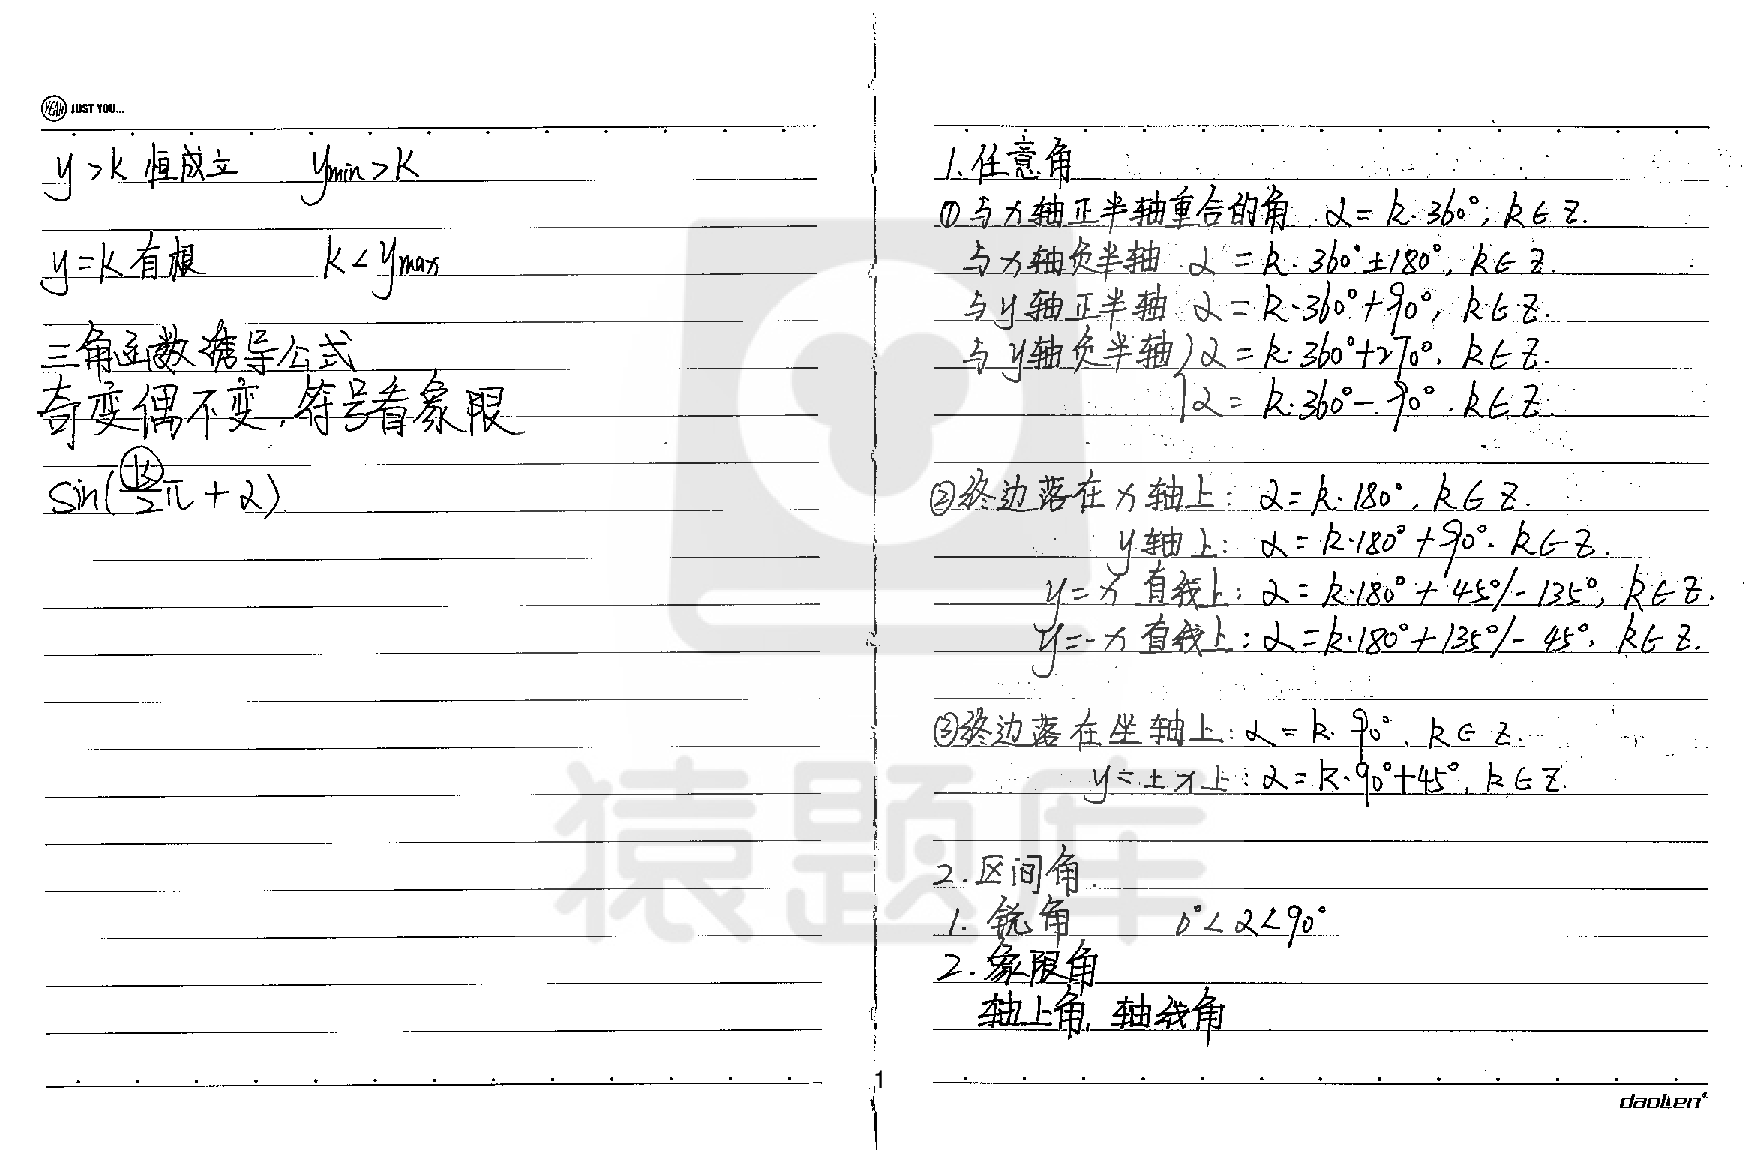 YEAH JUST YOU...
y>k 恒成立 ymin>k
y=k有根 k<ymax
三角函数诱导公式
奇变偶不变,符号看象限
sin(k/2π+α)
1.任意角
①与x轴正半轴重合的角 α=k·360°,k∈Z.
与x轴负半轴 α=k·360°±180°,k∈Z.
与y轴正半轴 α=k·360°+90°,k∈Z.
与y轴负半轴 α=k·360°+270°,k∈Z.
α=k·360°-90°,k∈Z.
②终边落在x轴上: α=k·180°,k∈Z.
y轴上: α=k·180°+90°,k∈Z.
y=x 直线上: α=k·180°+45°/-135°,k∈Z.
y=-x 直线上: α=k·180°+135°/-45°,k∈Z.
③终边落在坐轴上: α=k·90°,k∈Z.
y=±x上: α=k·90°+45°,k∈Z.
2.区间角.
1.锐角 0°<α<90°
2.象限角
轴上角,轴线角
1
daolien
猿题库